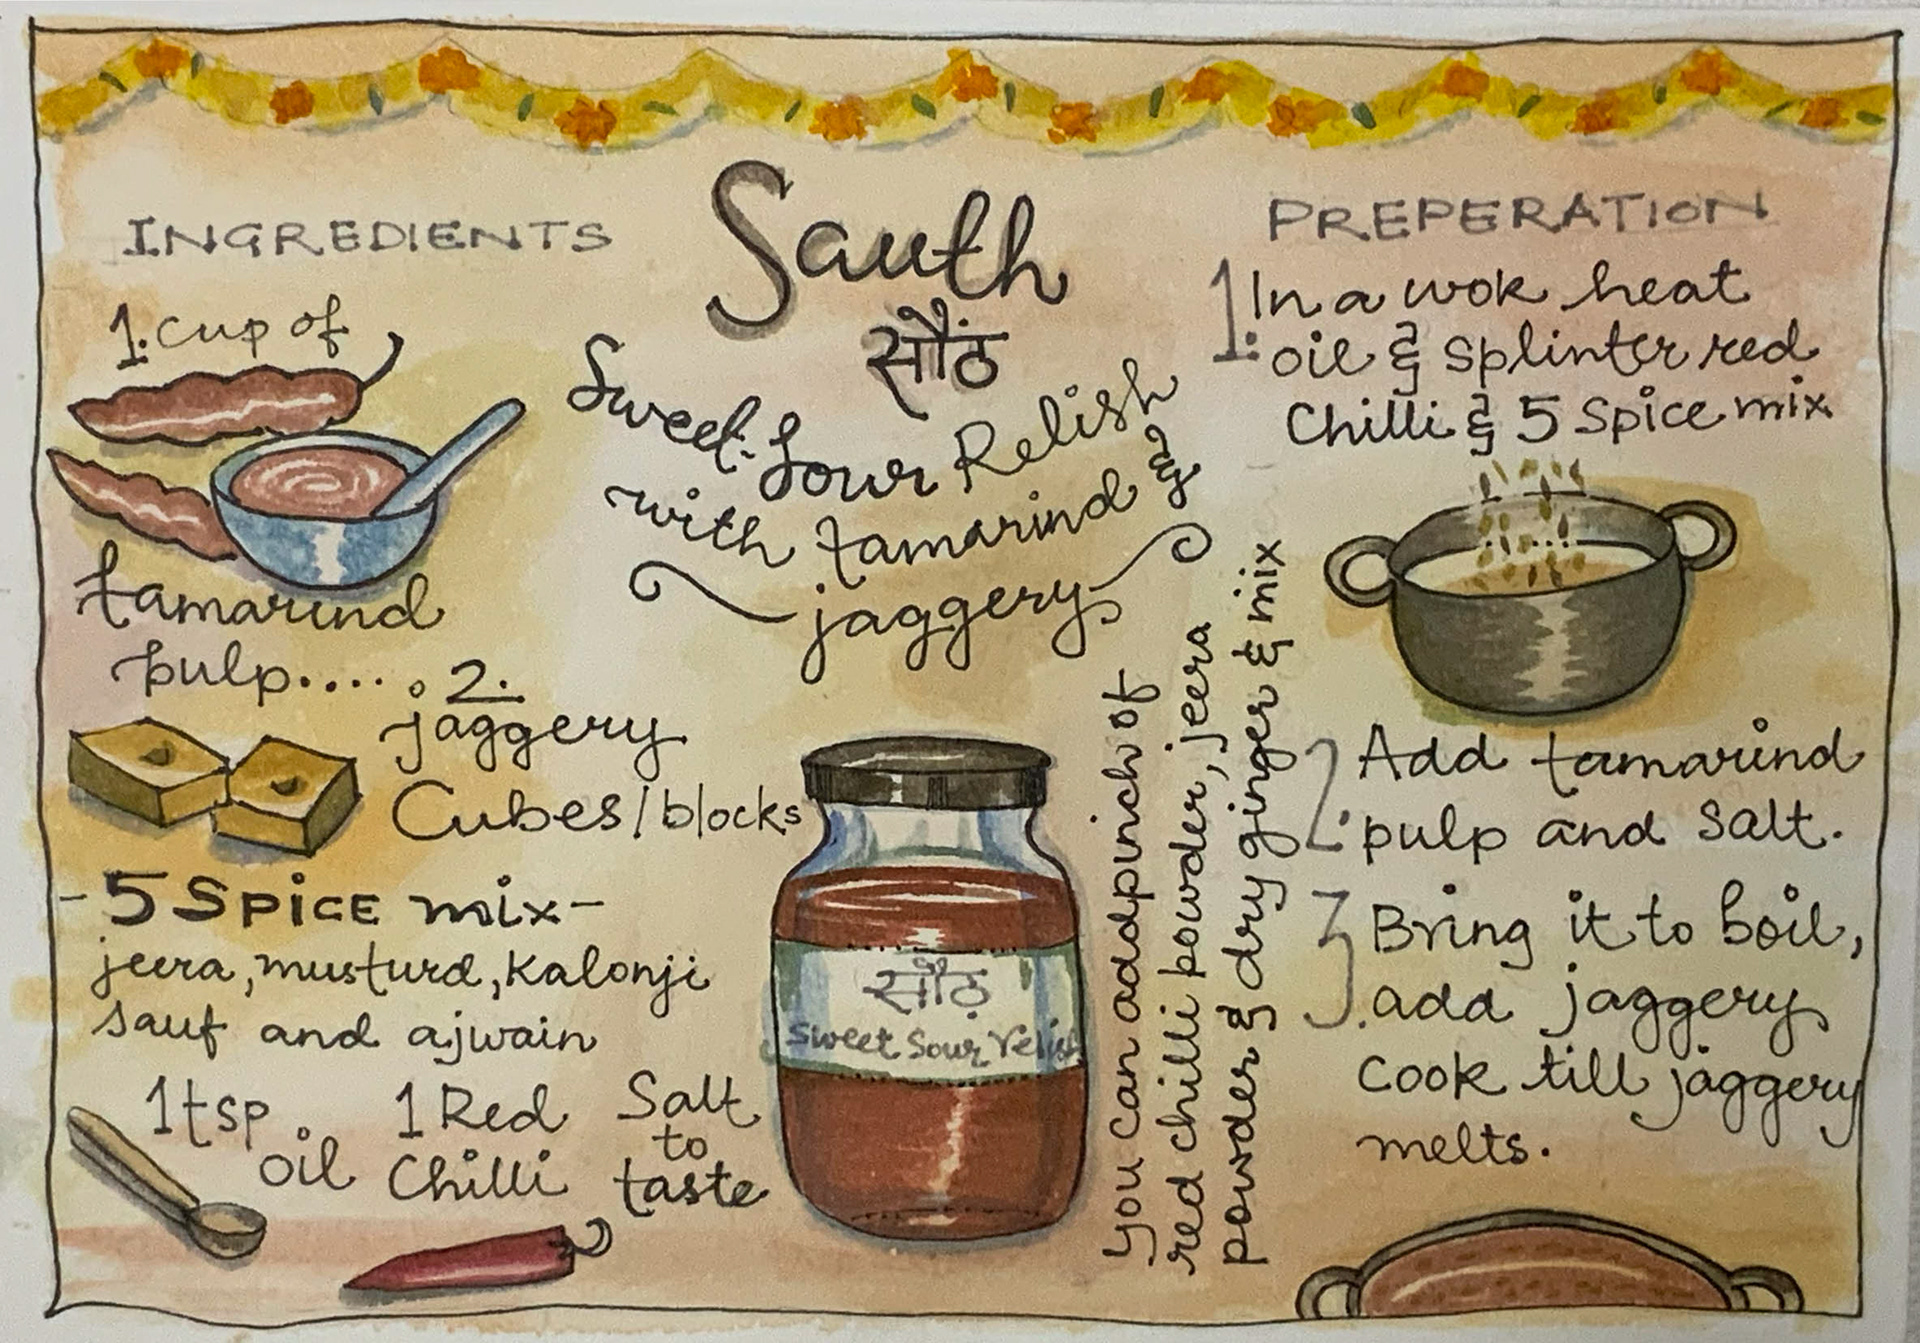 Sauth
सौंठ
Sweet-Sour Relish
with tamarind &
jaggery
INGREDIENTS
1. cup of
tamarind
pulp.....
2.
jaggery
Cubes/blocks
-5 SPICE mix-
jeera, musturd, Kalonji
sauf and ajwain
1 tsp
oil
1 Red
Chilli
Salt
to
taste
सौंठ
Sweet Sour relish
You can add pinch of
red chilli powder, jeera
powder & dry ginger & mix
PREPERATION
1. In a wok heat
oil & splinter red
Chilli & 5 Spice mix
2. Add tamarind
pulp and salt.
3. Bring it to boil,
add jaggery
Cook till jaggery
melts.